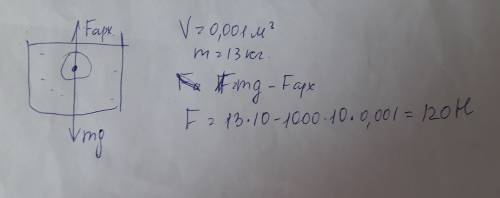 Fарх
mg
V = 0,001 м²
m = 13 кг.
F = mg - Fарх
F = 13·10 - 1000·10·0,001 = 120 Н